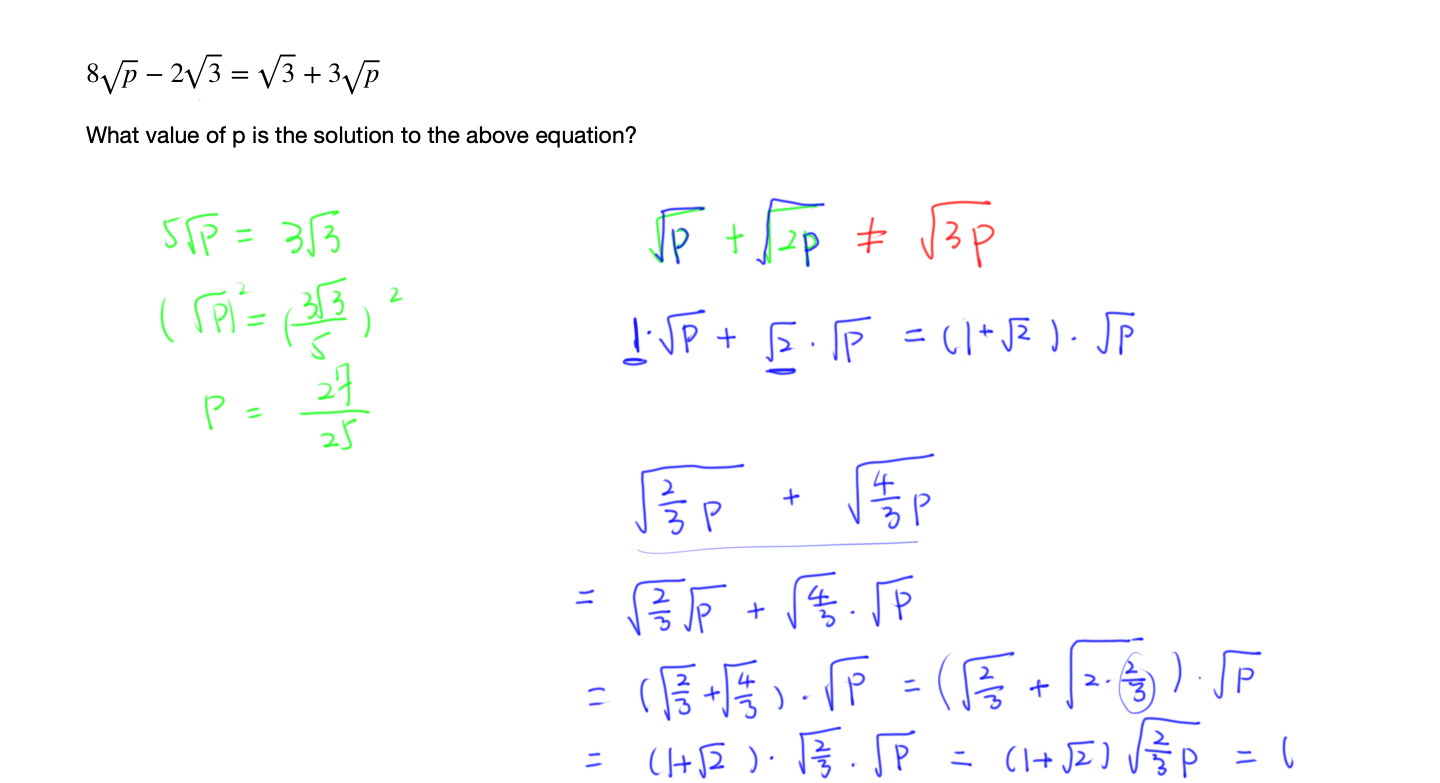 8√p − 2√3 = √3 + 3√p
What value of p is the solution to the above equation?
5√p = 3√3
(√p)² = (3√3/5)²
p = 27/25
√p + √2p ≠ √3p
1·√p + √2 · √p = (1+√2) · √p
√(2/3 p) + √(4/3 p)
= √(2/3) √p + √(4/3) · √p
= (√(2/3) + √(4/3)) · √p = (√(2/3) + √(2·(2/3))) · √p
= (1+√2) · √(2/3) · √p = (1+√2) √(2/3 p) = (